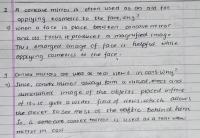 2 A concave mirror is often used as an aid for
applying cosmetics to the face, why?
→ when a face is place between concave mirror
and its focus, it produces a magnified image.
This enlarged image of face is helpful while
applying cosmetics to the face.
3 Convex mirrors are used as rear view in cars. why?
→ Since, convex mirror always form a virtual, erect and
diminished image of the objects placed infront
of it is gets a wider field of view which allows
the driver to see most of the traffic behind him.
So, a convex mirror is used as a rear view
mirror in cars